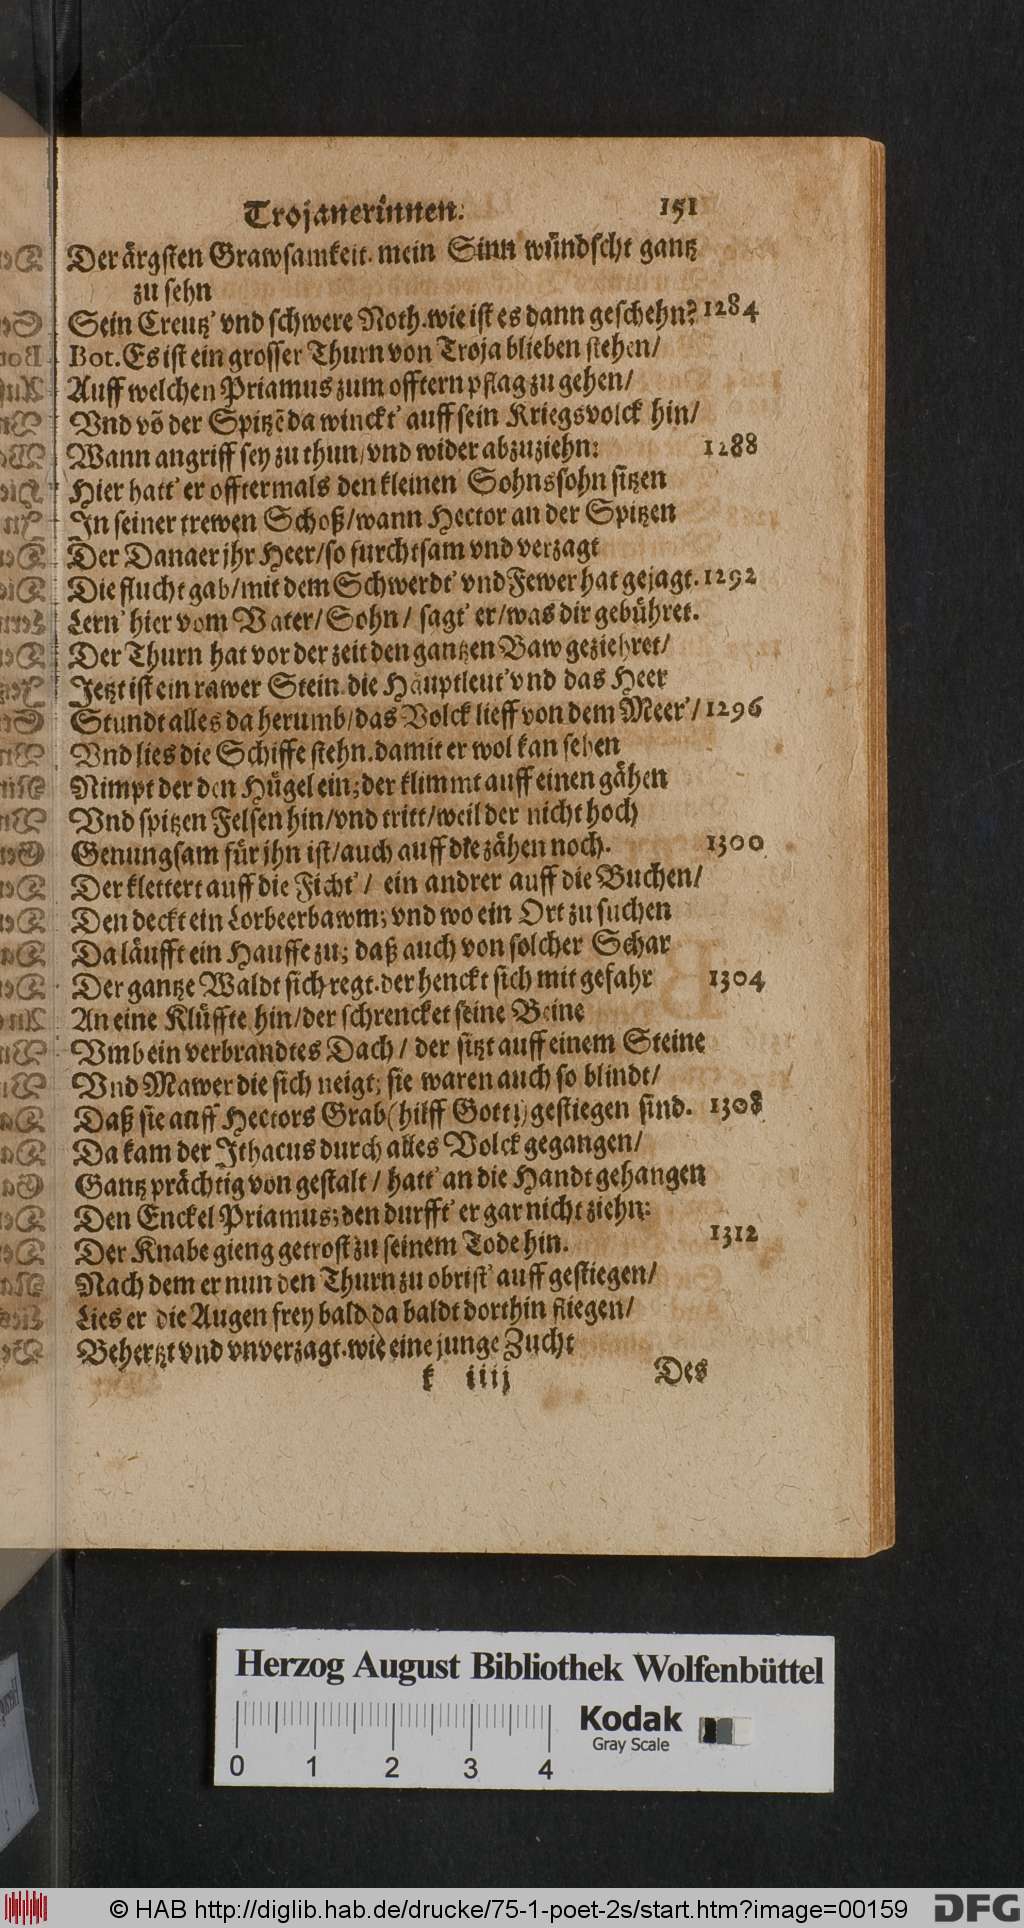 Trojanerinnen. 151
Der ärgsten Grawsamkeit. mein Sinn wündscht gantz
zu sehn
Sein Creutz' vnd schwere Noth. wie ist es dann geschehn? 1284
Bot. Es ist ein grosser Thurn von Troja blieben stehen/
Auff welchen Priamus zum offtern pflag zu gehen/
Vnd võ der Spitzẽ da winckt' auff sein Kriegsvolck hin/
Wann angriff sey zu thun/ vnd wider abzuziehn: 1288
Hier hatt' er offtermals den kleinen Sohnssohn sitzen
In seiner trewen Schoß/ wann Hector an der Spitzen
Der Danaer jhr Heer/ so furchtsam vnd verzagt
Die flucht gab/ mit dem Schwerdt' vnd Fewer hat gejagt. 1292
Lern' hier vom Vater/ Sohn/ sagt' er/ was dir gebühret.
Der Thurn hat vor der zeit den gantzen Baw geziehret/
Jetzt ist ein rawer Stein. die Häuptleut' vnd das Heer
Stundt alles da herumb/ das Volck lieff von dem Meer'/ 1296
Vnd lies die Schiffe stehn. damit er wol kan sehen
Nimpt der den Hügel ein; der klimmt auff einen gähen
Vnd spitzen Felsen hin/ vnd tritt/ weil der nicht hoch
Genungsam für jhn ist/ auch auff die zähen noch. 1300
Der klettert auff die Ficht'/ ein andrer auff die Buchen/
Den deckt ein Lorbeerbawm; vnd wo ein Ort zu suchen
Da läufft ein Hauffe zu; daß auch von solcher Schar
Der gantze Waldt sich regt. der henckt sich mit gefahr 1304
An eine Klüffte hin/ der schrencket seine Beine
Vmb ein verbrandtes Dach/ der sitzt auff einem Steine
Vnd Mawer die sich neigt; sie waren auch so blindt/
Daß sie auff Hectors Grab (hilff Gott!) gestiegen sind. 1308
Da kam der Ithacus durch alles Volck gegangen/
Gantz prächtig von gestalt/ hatt' an die Handt gehangen
Den Enckel Priamus; den durfft' er gar nicht ziehn:
Der Knabe gieng getrost zu seinem Tode hin. 1312
Nach dem er nun den Thurn zu obrist' auff gestiegen/
Lies er die Augen frey bald da baldt dorthin fliegen/
Behertzt vnd vnverzagt. wie eine junge Zucht
k iiij Des
Herzog August Bibliothek Wolfenbüttel
Kodak
Gray Scale
0 1 2 3 4
© HAB http://diglib.hab.de/drucke/75-1-poet-2s/start.htm?image=00159
DFG